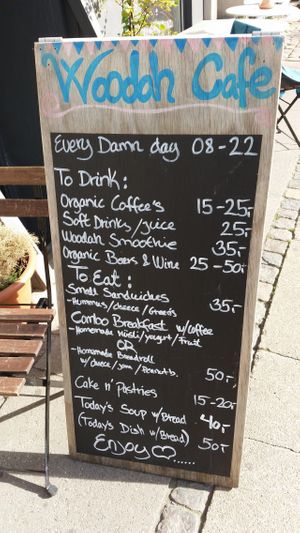 Woodah Cafe
Every Damn day 08-22
To Drink:
Organic Coffee's 15-25,-
Soft Drinks/juice 25,-
Woodah Smoothie 35,-
Organic Beers & Wine 25-50,-
To Eat:
Small Sandwiches
- Hummus/cheese/Greens 35,-
Combo Breakfast w/coffee
- Homemade Müsli/yogurt/fruit
OR
- Homemade Breadroll
w/cheese/jam/Peanutb. 50,-
Cake n' Pastries 15-20,-
Today's Soup w/Bread 40,-
(Today's Dish w/Bread) 50,-
Enjoy ♡......